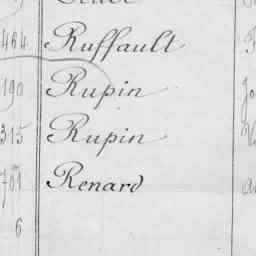 464 Ruffault
190 Rupin
315 Rupin
791 Renard
6